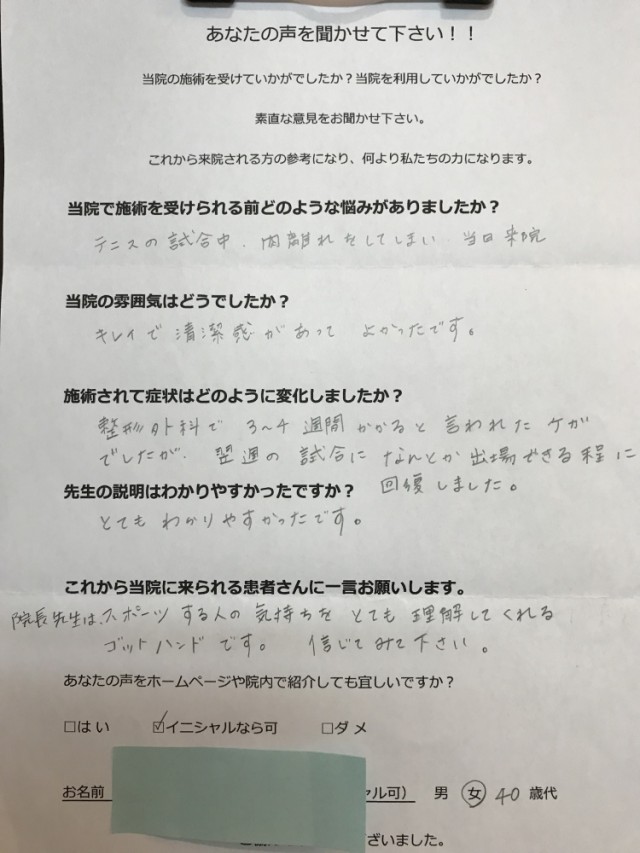 あなたの声を聞かせて下さい！！
当院の施術を受けていかがでしたか？当院を利用していかがでしたか？
素直な意見をお聞かせ下さい。
これから来院される方の参考になり、何より私たちの力になります。
当院で施術を受けられる前どのような悩みがありましたか？
テニスの試合中、肉離れをしてしまい 当日来院
当院の雰囲気はどうでしたか？
キレイで清潔感があって よかったです。
施術されて症状はどのように変化しましたか？
整形外科で 3〜4週間かかると言われたケガ
でしたが、翌週の試合になんとか出場できる程に
回復しました。
先生の説明はわかりやすかったですか？
とてもわかりやすかったです。
これから当院に来られる患者さんに一言お願いします。
院長先生は、スポーツする人の気持ちをとても理解してくれる
ゴットハンドです。 信じてみて下さい。
あなたの声をホームページや院内で紹介しても宜しいですか？
□はい ☑イニシャルなら可 □ダメ
お名前 ャル可） 男 女 40 歳代
ざいました。